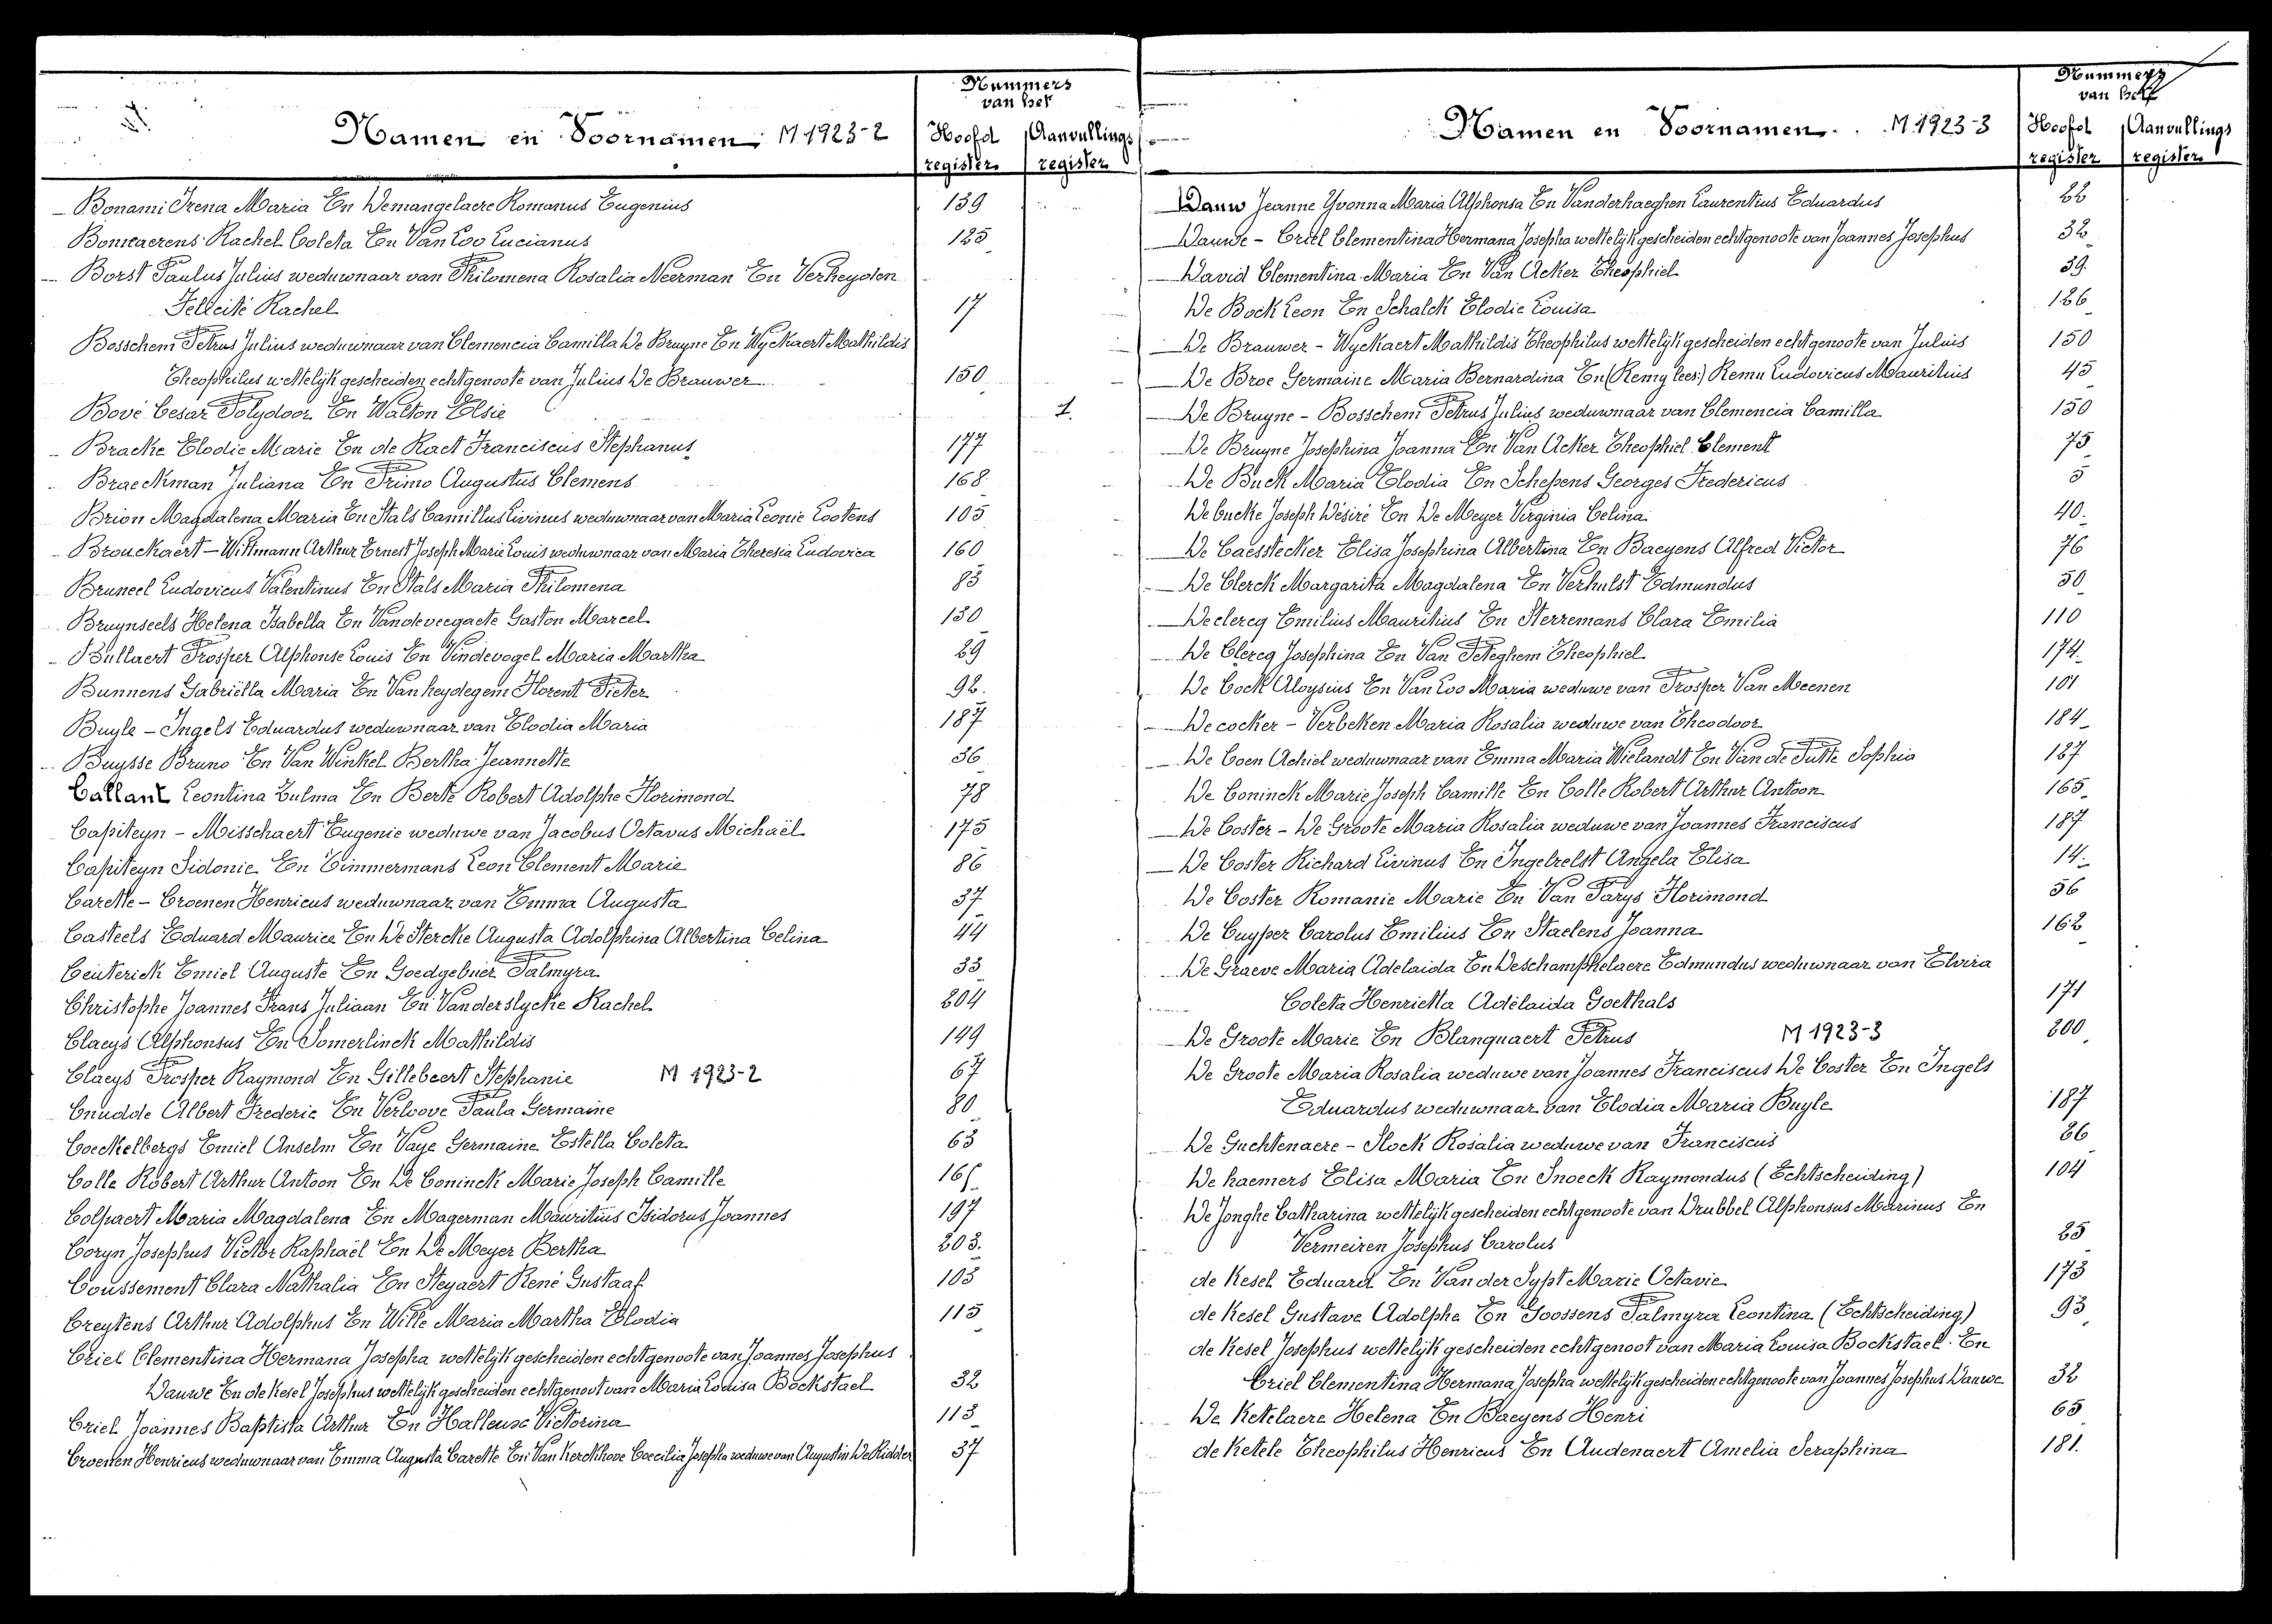 Nummers
van het
Namen en Voornamen M 1923-2
Hoofd Aanvullings
register register
Bonami Irena Maria En Demangelaere Romanus Eugenius 139
Bontaerens Rachel Coleta En Van Loo Lucianus 125
Borst Paulus Julius weduwnaar van Philomena Rosalia Neerman En Verheyden
Felicité Rachel 17
Bosschem Petrus Julius weduwnaar van Clemencia Camilla De Bruyne En Wyckaert Mathildis
Theophilus wettelijk gescheiden echtgenoote van Julius De Brauwer 150
Bové Cesar Polydoor En Walton Elsie 1
Bracke Elodie Marie En de Raet Franciscus Stephanus 177
Braeckman Juliana En Primo Augustus Clemens 168
Brion Magdalena Maria En Stals Camillus Livinus weduwnaar van Maria Leonie Lootens 105
Brouckaert - Wittmann Arthur Ernest Joseph Marie Louis weduwnaar van Maria Theresia Ludovica 160
Bruneel Ludovicus Valentinus En Stals Maria Philomena 83
Bruynseels Helena Isabella En Vandeveegaete Gaston Marcel 130
Bullaert Prosper Alphonse Louis En Vindevogel Maria Martha 29
Bunnens Gabriëlla Maria En Van heydegem Florent Pieter 92
Buyle - Ingels Eduardus weduwnaar van Elodia Maria 187
Buysse Bruno En Van Winkel Bertha Jeannette 36
Callant Leontina Zulma En Berte Robert Adolphe Florimond 78
Capiteyn - Misschaert Eugenie weduwe van Jacobus Octavus Michaël 175
Capiteyn Sidonie En Timmermans Leon Clement Marie 86
Carette - Croenen Henricus weduwnaar van Emma Augusta 37
Casteels Eduard Maurice En De Stercke Augusta Adolphina Albertina Celina 44
Ceuterick Emiel Auguste En Goedgebuer Palmyra 33
Christophe Joannes Frans Juliaan En Vanderslycke Rachel 204
Claeys Alphonsus En Somerlinck Mathildis 149
Claeys Prosper Raymond En Gillebeert Stephanie M 1923-2 67
Cnudde Albert Frederic En Verloove Paula Germaine 80
Coeckelbergs Emiel Anselm En Vaye Germaine Estella Coleta 63
Colle Robert Arthur Antoon En De Coninck Marie Joseph Camille 165
Colpaert Maria Magdalena En Magerman Mauritius Isidorus Joannes 197
Coryn Josephus Victor Raphaël En De Meyer Bertha 203
Coussement Clara Nathalia En Steyaert René Gustaaf 103
Creytens Arthur Adolphus En Wille Maria Martha Elodia 115
Criel Clementina Hermana Josepha wettelijk gescheiden echtgenoote van Joannes Josephus
Dauwe En de Kesel Josephus wettelijk gescheiden echtgenoot van Maria Louisa Bockstael 32
Criel Joannes Baptista Arthur En Halleux Victorina 113
Croenen Henricus weduwnaar van Emma Augusta Carette En Van Kerckhove Coecilia Josepha weduwe van Augustin De Ridder 37
Nummers
van het
Namen en Voornamen M 1923-3
Hoofd Aanvullings
register register
Dauw Jeanne Yvonna Maria Alphonsa En Vanderhaeghen Laurentius Eduardus 22
Dauwe - Criel Clementina Hermana Josepha wettelijk gescheiden echtgenoote van Joannes Josephus 32
David Clementina Maria En Van Acker Theophiel 39
De Bock Leon En Schalck Elodie Louisa 126
De Brauwer - Wyckaert Mathildis Theophilus wettelijk gescheiden echtgenoote van Julius 150
De Broe Germaine Maria Bernardina En (Remy lees:) Remu Ludovicus Mauritius 45
De Bruyne - Bosschem Petrus Julius weduwnaar van Clemencia Camilla 150
De Bruyne Josephina Joanna En Van Acker Theophiel Clement 75
De Buck Maria Elodia En Schepens Georges Fredericus 5
De bucke Joseph Désiré En De Meyer Virginia Celina 40
De Caesstecker Elisa Josephina Albertina En Baeyens Alfred Victor 76
De Clerck Margarita Magdalena En Verhulst Edmundus 50
Declercq Emilius Mauritius En Sterremans Clara Emilia 110
De Clercq Josephina En Van Peteghem Theophiel 174
De Cock Aloysius En Van Loo Maria weduwe van Prosper Van Meenen 101
De cocker - Verbeken Maria Rosalia weduwe van Theodoor 184
De Coen Achiel weduwnaar van Emma Maria Wielandt En Van de Putte Sophia 127
De Coninck Marie Joseph Camille En Colle Robert Arthur Antoon 165
De Coster - De Groote Maria Rosalia weduwe van Joannes Franciscus 187
De Coster Richard Livinus En Ingelrelst Angela Elisa 14
De Coster Romanie Marie En Van Parys Florimond 56
De Cuyper Carolus Emilius En Staelens Joanna 162
De Graeve Maria Adelaida En Deschamphelaere Edmundus weduwnaar van Elvira
Coleta Henrietta Adelaida Goethals 171
De Groote Marie En Blanquaert Petrus M 1923-3 200
De Groote Maria Rosalia weduwe van Joannes Franciscus De Coster En Ingels
Eduardus weduwnaar van Elodia Maria Buyle 187
De Guchtenaere - Slock Rosalia weduwe van Franciscus 26
De haemers Elisa Maria En Snoeck Raymondus (Echtscheiding) 104
De Jonghe Catharina wettelijk gescheiden echtgenoote van Drubbel Alphonsus Marinus En
Vermeiren Josephus Carolus 25
de Kesel Eduard En Van der Sypt Marie Octavie 173
de Kesel Gustave Adolphe En Goossens Palmyra Leontina (Echtscheiding) 93
de Kesel Josephus wettelijk gescheiden echtgenoot van Maria Louisa Bockstael En
Criel Clementina Hermana Josepha wettelijk gescheiden echtgenoote van Joannes Josephus Dauwe 32
De Ketelaere Helena En Baeyens Henri 65
de Ketele Theophilus Henricus En Audenaert Amelia Seraphina 181